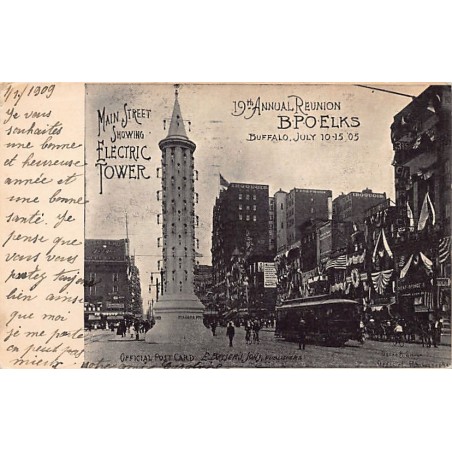 1/1/1909
Je vous
souhaites
une bonne
et heureuse
année et
une bonne
santé. Je
pense que
vous vous
portez toujours
bien ainsi
que moi
je me porte
on peut pas
mieux
Main Street
Showing
Electric
Tower
19th Annual Reunion
B.P.O. Elks
Buffalo, July 10-15 '05
IROQUOIS
Official Post Card.
Publishers